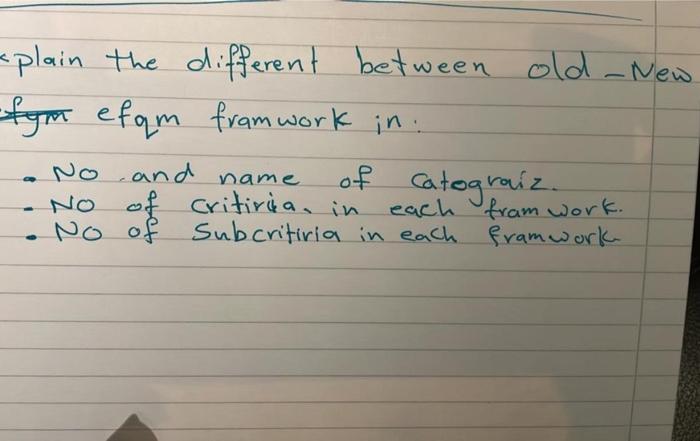 xplain the different between old - New
efqm framwork in:
- No and name of Catograiz.
- No of Critiria in each framwork.
- No of Subcritiria in each framwork